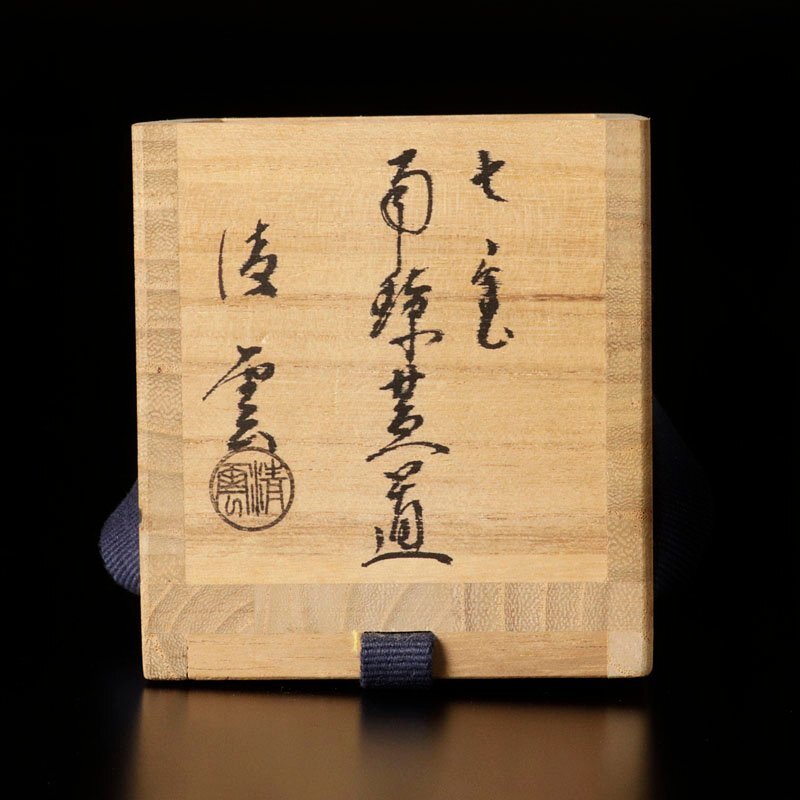 七宝
南鐐蓋置
清雲
清雲